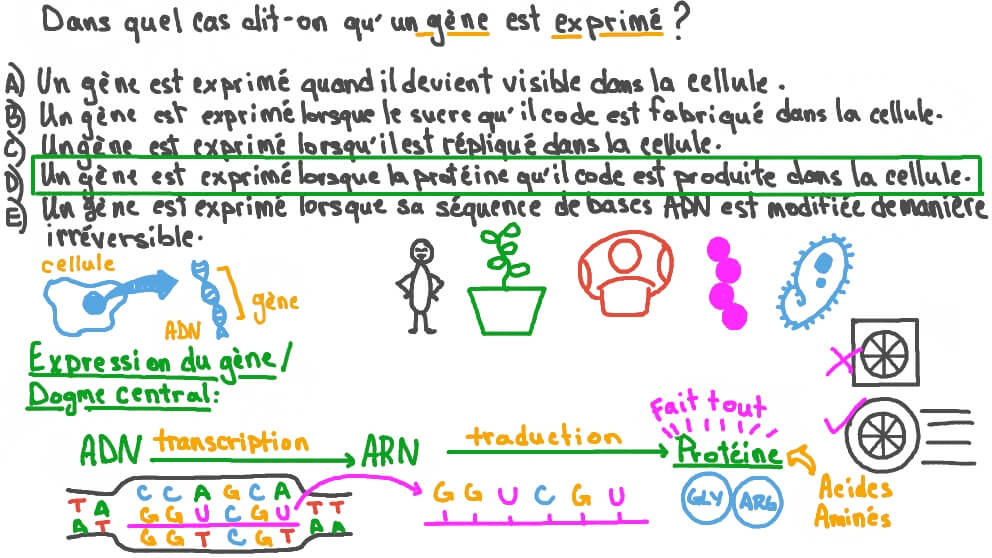 Dans quel cas dit-on qu'un gène est exprimé ?
A) Un gène est exprimé quand il devient visible dans la cellule.
B) Un gène est exprimé lorsque le sucre qu'il code est fabriqué dans la cellule.
C) Un gène est exprimé lorsqu'il est répliqué dans la cellule.
D) Un gène est exprimé lorsque la protéine qu'il code est produite dans la cellule.
E) Un gène est exprimé lorsque sa séquence de bases ADN est modifiée de manière
irréversible.
cellule
gène
ADN
Expression du gène/
Dogme central:
Fait tout
ADN transcription ARN traduction Protéine
Acides
Aminés
GLY ARG
C C A G C A
T A G G U C G U T T
A T G G T C G T A A
G G U C G U